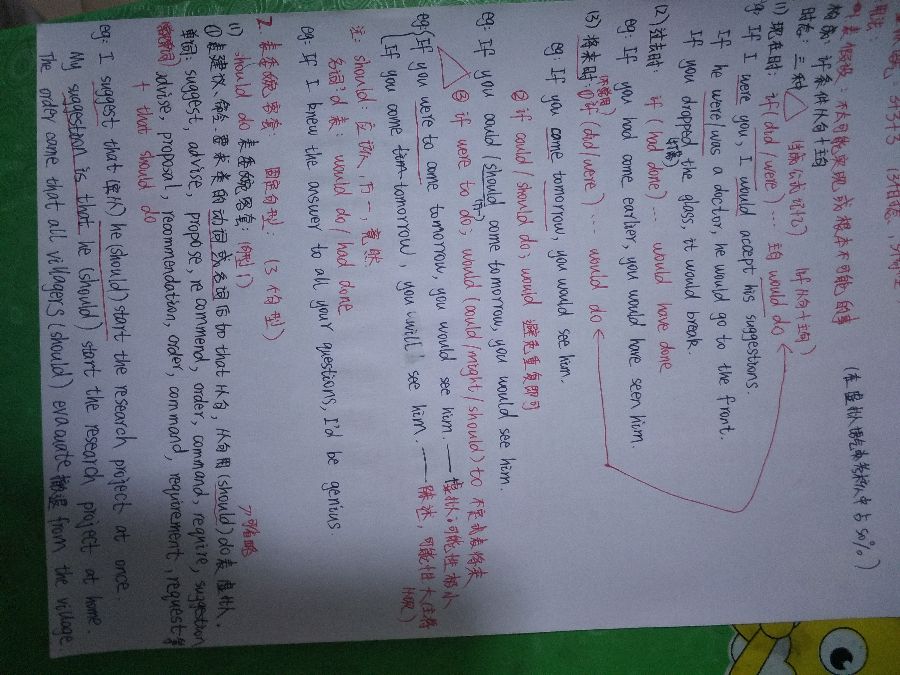 1. 表假设：不大可能实现或根本不可能的事
(在虚拟语气考核中占50%)
构成：if条件从句+主句
时态：三种 (if从句+主句)
(1) 现在时: if (did/were)… 主句 would do
eg If I were you, I would accept his suggestions.
If he were/was a doctor, he would go to the front.
If you dropped the glass, it would break.
(2) 过去时: if (had done)… would have done
eg: If you had come earlier, you would have seen him.
(3) 将来时: ① if (did/were)… would do
eg: If you came tomorrow, you would see him.
② if could/should do, would 避免重复即可
eg: If you could/should come tomorrow, you would see him.
③ if were to do, would (could/might/should) to 不定式表将来
eg If you were to come tomorrow, you would see him. — 虚拟, 可能性极小
If you come tomorrow, you will see him. — 陈述, 可能性大
注: should: 应该, 万一, 竟然
would do / had done
eg: If I knew the answer to all your questions, I'd be genius.
2. 表委婉客套: 固定句型: (3大句型)
(1) should do 表委婉客套: (句型1)
① 表建议、命令、要求类的动词或名词后加that从句, 从句用(should) do 表虚拟.
可省略
单词: suggest, advise, propose, recommend, order, command, require, suggestion
advise, proposal, recommendation, order, command, requirement, request等
+ that should do
eg: I suggest that he (should) start the research project at once.
My suggestion is that he (should) start the research project at home.
The order came that all villagers (should) evacuate 撤退 from the village.